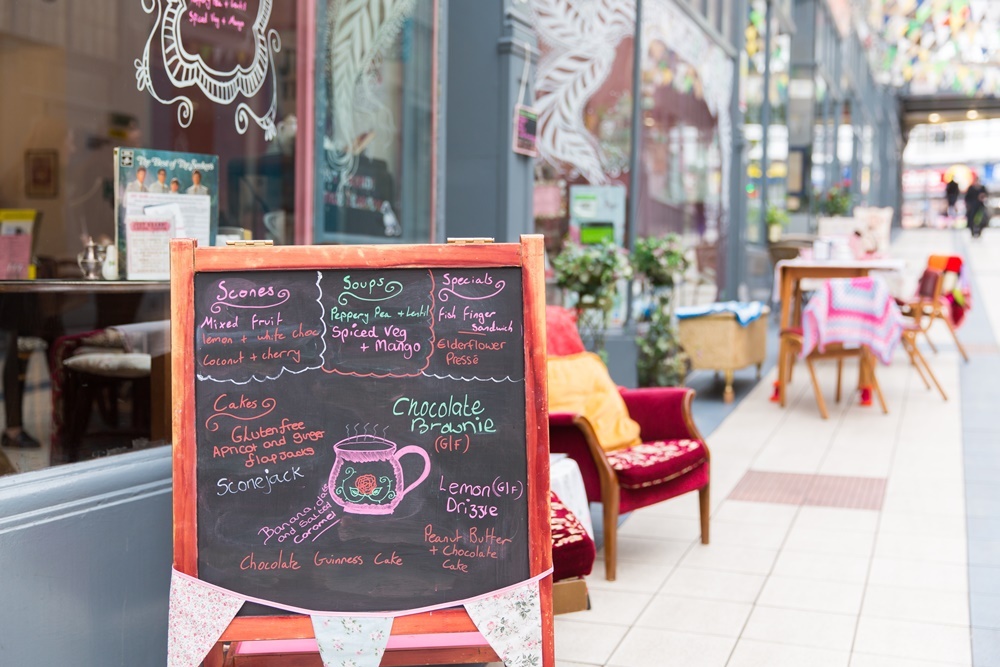 Pea + lentil
Spiced Veg + Mango
The Best of The Seekers
Scones
Mixed fruit
lemon + white choc
Coconut + cherry
Soups
Peppery Pea + Lentil
Spiced Veg
+ Mango
Specials
Fish Finger
Sandwich
Elderflower
Pressé
Cakes
Glutenfree
Apricot and ginger
flapjacks
Sconejack
Banana, date
and salted
caramel
Chocolate
Brownie
(G|F)
Lemon (G|F)
Drizzle
Peanut Butter
+ Chocolate
Cake
Chocolate Guinness Cake